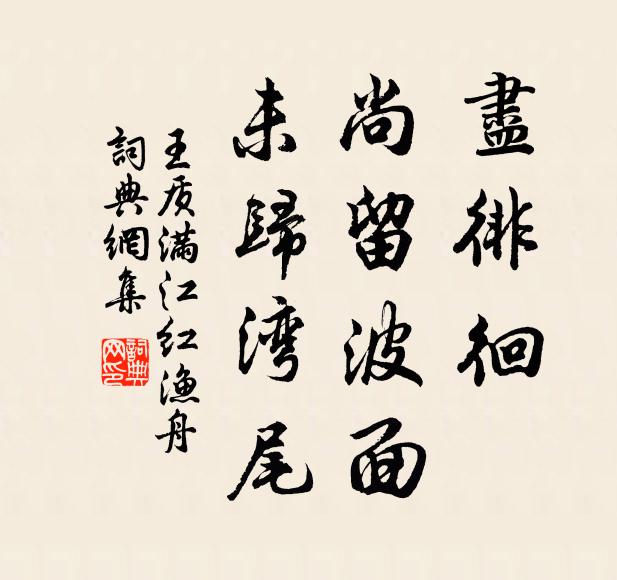 盡徘徊
尚留波面
未歸湾尾
王质满江红渔舟
詞典網集
詞典
网印